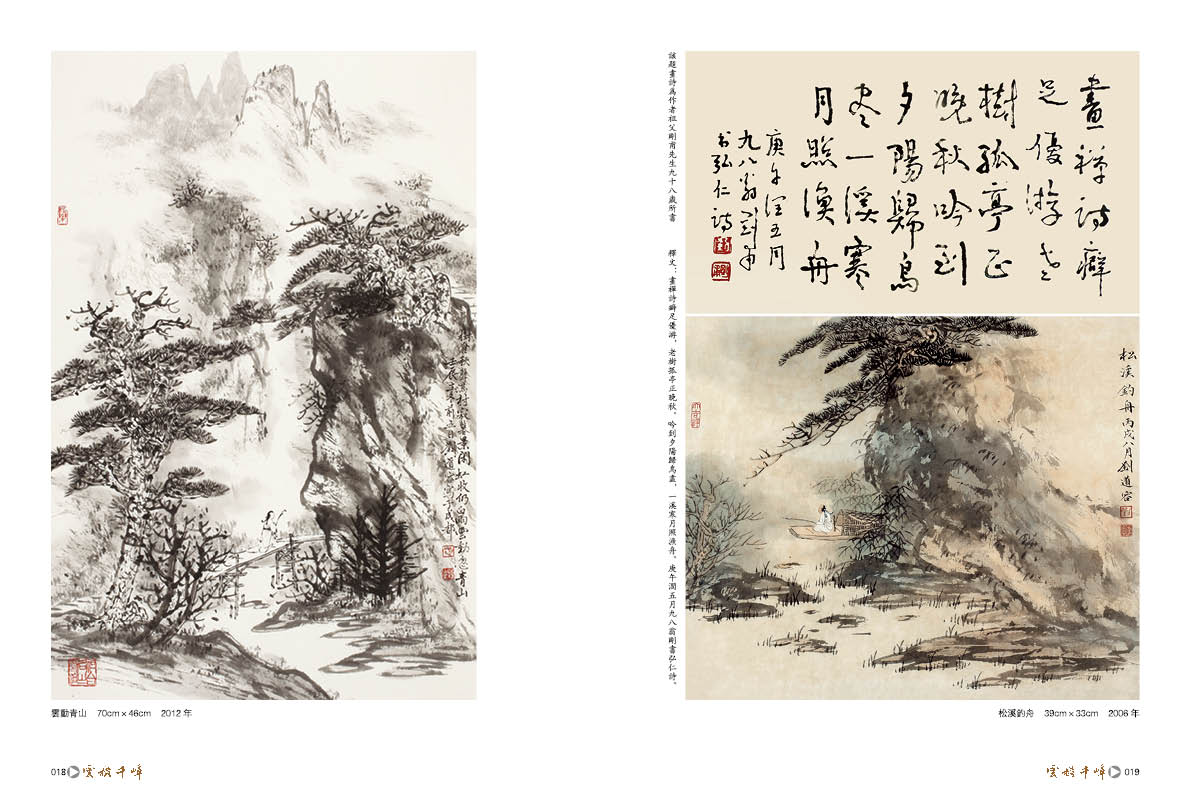 雲動青山　70cm×46cm　2012 年
018
雲嶺千峰
該題畫詩為作者祖父剛甫先生九十八歲所書　釋文：畫禪詩癖足優游，老樹孤亭正晚秋。吟到夕陽歸鳥盡，一溪寒月照漁舟。庚午潤五月九八翁剛書弘仁詩。
畫禪詩癖
足優游老
樹孤亭正
晚秋吟到
夕陽歸鳥
尽一溪寒
月照漁舟
庚午潤五月
九八翁剛甫
书弘仁詩
松溪釣舟丙戌八月劉道容
松溪釣舟　39cm×33cm　2006 年
019